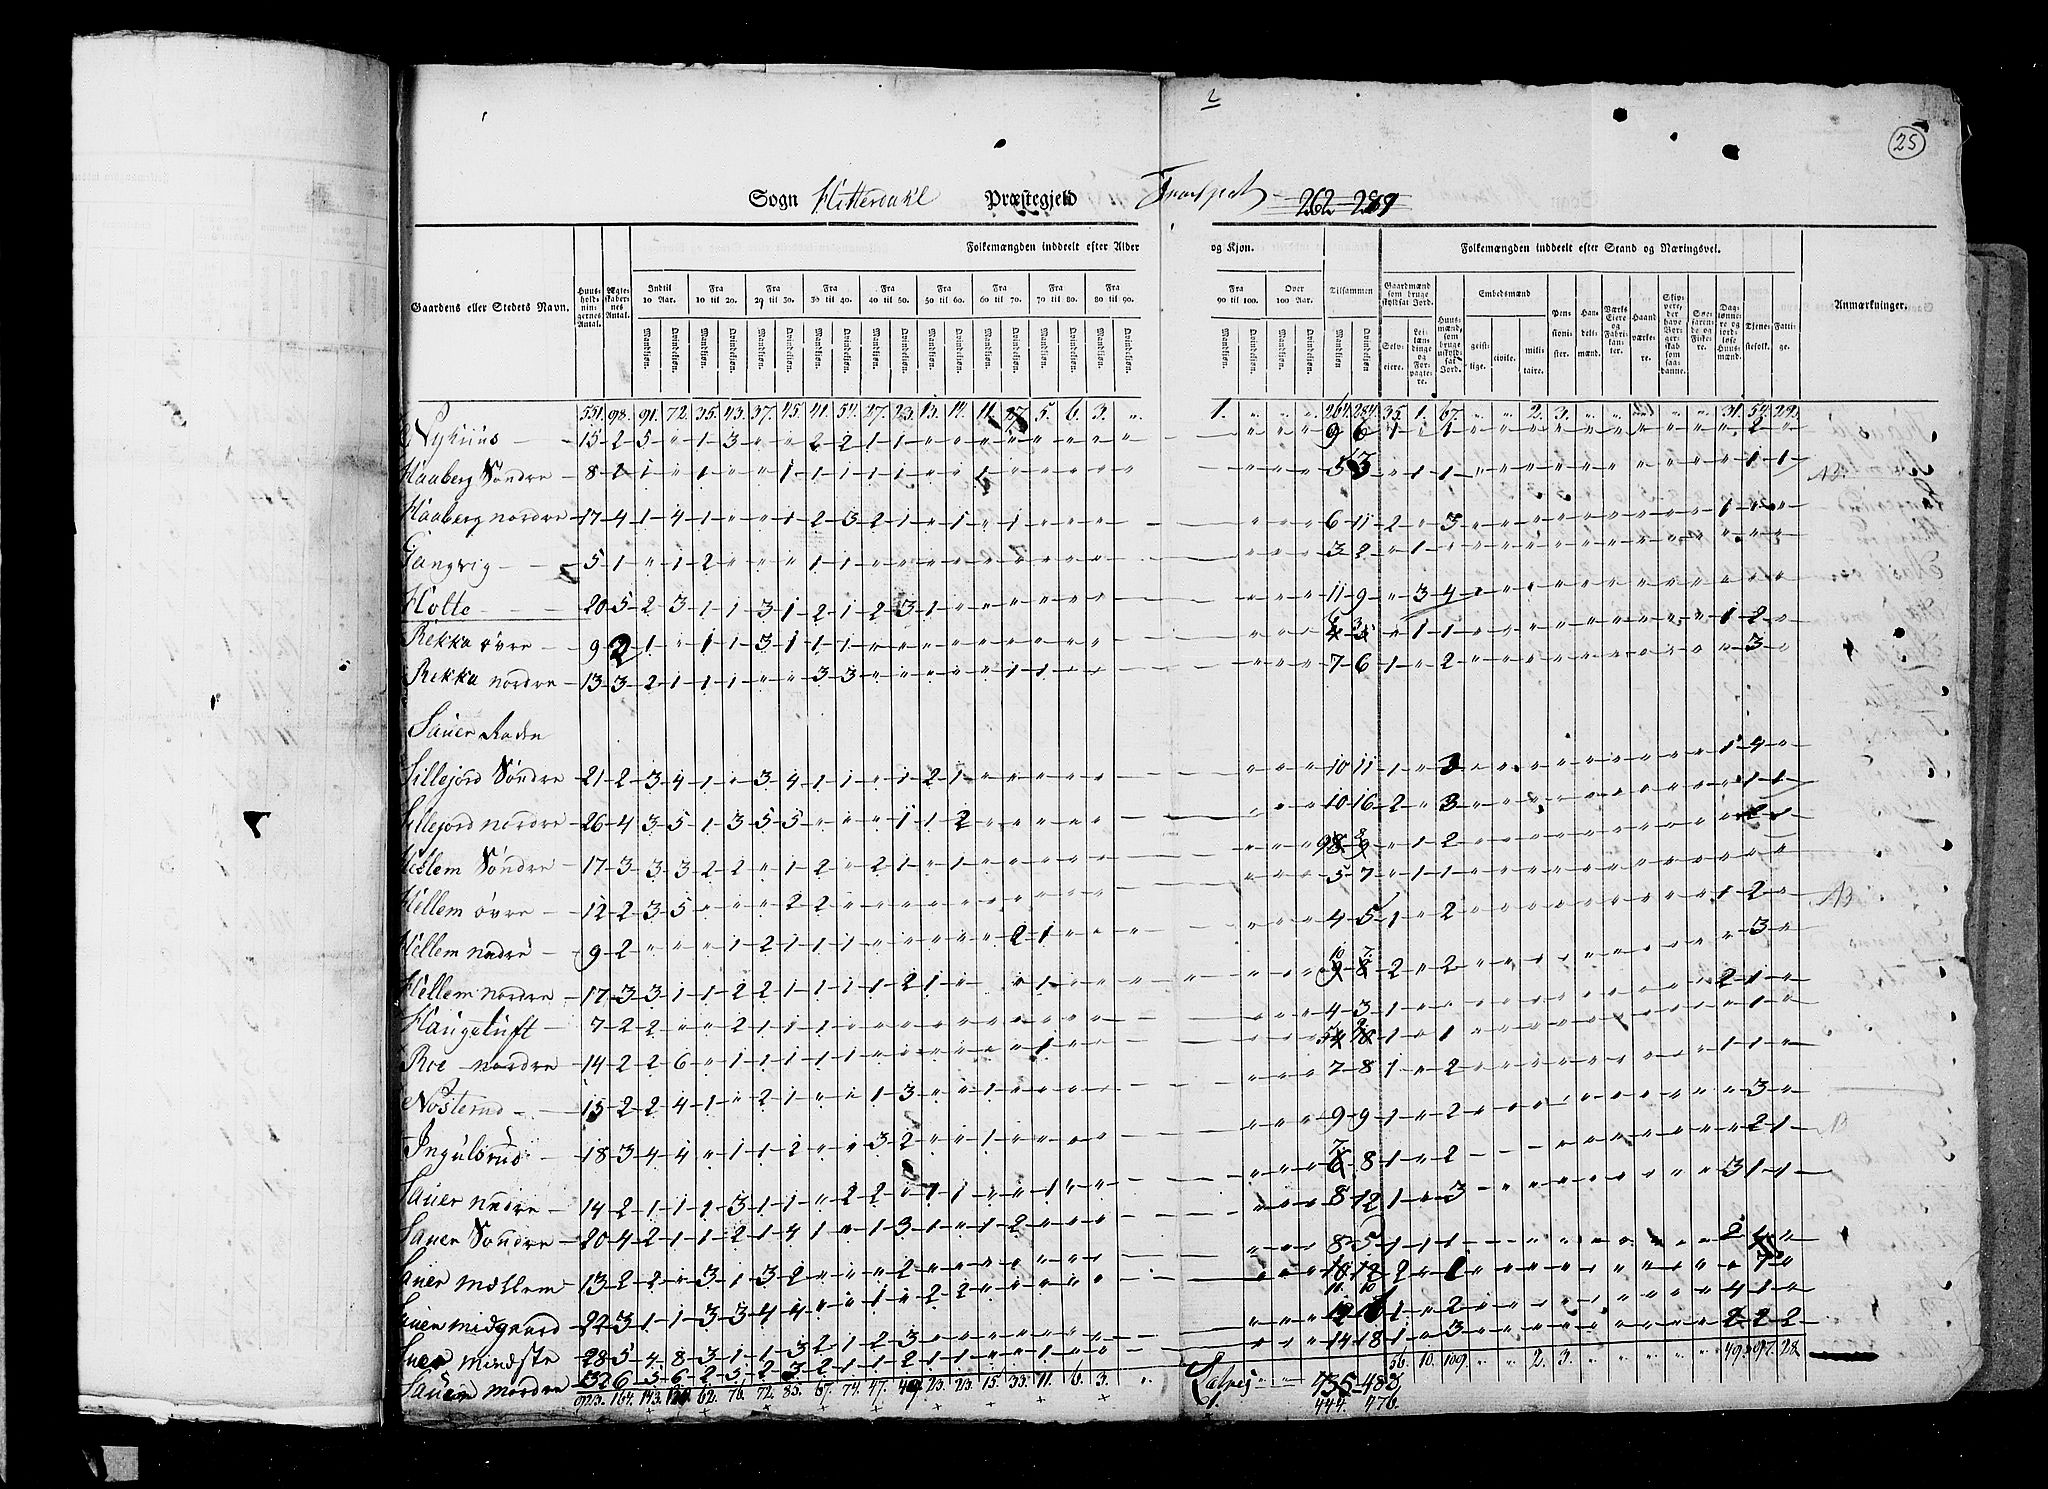 2
25
Sogn Hitterdahl Præstegjeld Transport 262 289
Gaardens eller Stedets Navn.
Huusholdningernes Antal.
Ægteskabernes Antal.
Folkemængden inddeelt efter Alder og Kjøn.
Indtil 10 Aar.
Fra 10 til 20.
Fra 20 til 30.
Fra 30 til 40.
Fra 40 til 50.
Fra 50 til 60.
Fra 60 til 70.
Fra 70 til 80.
Fra 80 til 90.
Fra 90 til 100.
Over 100 Aar.
Tilsammen
Mandkjøn. Qvindekjøn.
Folkemængden inddeelt efter Stand og Næringsvei.
Gaardmænd som bruge skyldsat Jord.
Selveiere.
Leilændinge og Forpagtere.
Huusmænd, som bruge uskyldsat Jord.
Embedsmænd
geistlige. civile. militaire.
Pensionister.
Handelsmænd.
Værks Eiere og Fabrikanter.
Haandværkere.
Skippere, der have Borgerskab som saadanne.
Søefarende og Fiskere.
Daglønnere og jordløse Huusmænd.
Tjenestefolk.
Fattige.
Anmærkninger.
551. 98. 91. 72. 35. 43. 37. 45. 41. 54. 27. 23. 13. 14. 11. 27. 5. 6. 3. " 1. " " " 264. 284. 35. 1. 67. " " 2. 3. " " " " " 31. 54. 22.
Nyhuus 15 2 5 " 1 3 " " 2 2 1 1 " " " " " " " " " " " 9 6 1 " 1 " " " " " " " " " " 2 "
Haaberg Søndre 8 2 1 " 1 " " 1 1 1 1 1 " " 1 " " " " " " " " 5 3 " 1 1 " " " " " " " " " " 1 1
Haaberg nordre 17 4 1 4 1 " " 1 2 3 2 1 " 1 " 1 " " " " " " 6 11 2 " 3 " " " " " " " " " 1 5 "
Tangvig 5 1 " 1 2 " " " 1 1 " " " " " " " " " " " " 3 2 " 1 " " " " " " " " " " " " "
Holte 20 5 2 3 1 1 3 1 2 1 2 3 1 " " " " " " " " " " 11 9 " 3 4 " " " " " " " " " " " "
Rekka øvre 9 2 1 " 1 1 3 1 1 1 " " " " " " " " " " " " 4 3 " 1 1 " " " " " " " " " 1 2 "
Rekka nordre 13 3 2 1 1 1 " " 3 3 " " " " " 1 1 " " " " " 7 6 1 " 2 " " " " " " " " " " 3 "
Sauer Roden
Lillejord Søndre 21 2 3 4 1 " 3 4 1 1 " 1 2 1 " " " " " " " " 10 11 1 " 3 " " " " " " " " " 1 4 "
Lillejord nordre 26 4 3 5 1 3 5 5 " " " 1 1 2 " " " " " " " 10 16 2 " 3 " " " " " " " " " " 1 1
Hellem Søndre 17 3 3 3 2 2 " 1 2 " 2 1 " 1 " " " " " " " 9 8 " 1 2 " " " " " " " " " " 2 1
Hellem øvre 12 2 3 5 " " " 2 2 " " " " " " " " " " " 5 7 " 1 1 " " " " " " " " " " " "
Hellem nedre 9 2 " " " 1 2 1 1 1 " " " " " 2 1 " " " " " 4 5 1 " 2 " " " " " " " " " 1 2 "
Hellem nordre 17 3 3 1 1 2 2 1 1 1 1 2 1 " " 1 " " " " " " 10 7 2 " 2 " " " " " " " " " " 3 "
Haugetuft 7 2 2 " " 2 1 1 1 " " " " " " " " " " " " 4 3 1 " " " " " " " " " " " 2 1 "
Roe nordre 14 2 2 6 " 1 1 1 1 1 " " " " " " 1 " " " " " 5 9 1 " 1 " " " " " " " " " " 1 "
Nøsterud 15 2 2 4 1 " 2 1 " " 1 3 " " 1 " " " " " " " 7 8 1 " 2 " " " " " " " " " 1 1 "
Ingulsrud 18 3 4 4 " 1 1 2 " " 3 2 " " 1 " " " " " " " 9 9 1 " 2 " " " " " " " " " " 3 "
Sauer nedre 14 2 1 1 1 3 1 1 " 2 2 " 1 1 " " 1 " " " " " 7 8 1 " 2 " " " " " " " 2 1
Sauer Søndre 20 4 2 1 1 2 1 4 1 " 1 3 1 " 1 2 " " " " " " 8 12 1 " 3 " " " " " " " 3 1 1
Sauer mellem 13 2 2 " 3 1 3 2 " " " 2 " " " " " " " " " " 8 5 1 1 1 " " " " " " " 2 4 "
Sauer midgaard 22 3 1 1 3 3 4 4 " " 1 " 2 2 " " " " " " " 10 12 2 " 1 " " " " " " " " 7 "
Sauer mindste 28 5 4 8 3 1 1 3 2 1 2 3 " " " " " " " " 1 " 2 " " " " " " " 4 1 "
Sauer nordre 32 6 3 6 2 3 2 3 2 1 1 2 1 1 " " 1 " " " 14 18 1 " 3 " " " " " " " 2 2 2
923. 164. 143. 62. 76. 72. 85. 67. 74. 47. 49. 23. 23. 15. 33. 11. 6. 3. " 1. 435 483 56. 10. 109. " " 2. 3. " " " " " 49. 97. 28.
Latus 444. 476.